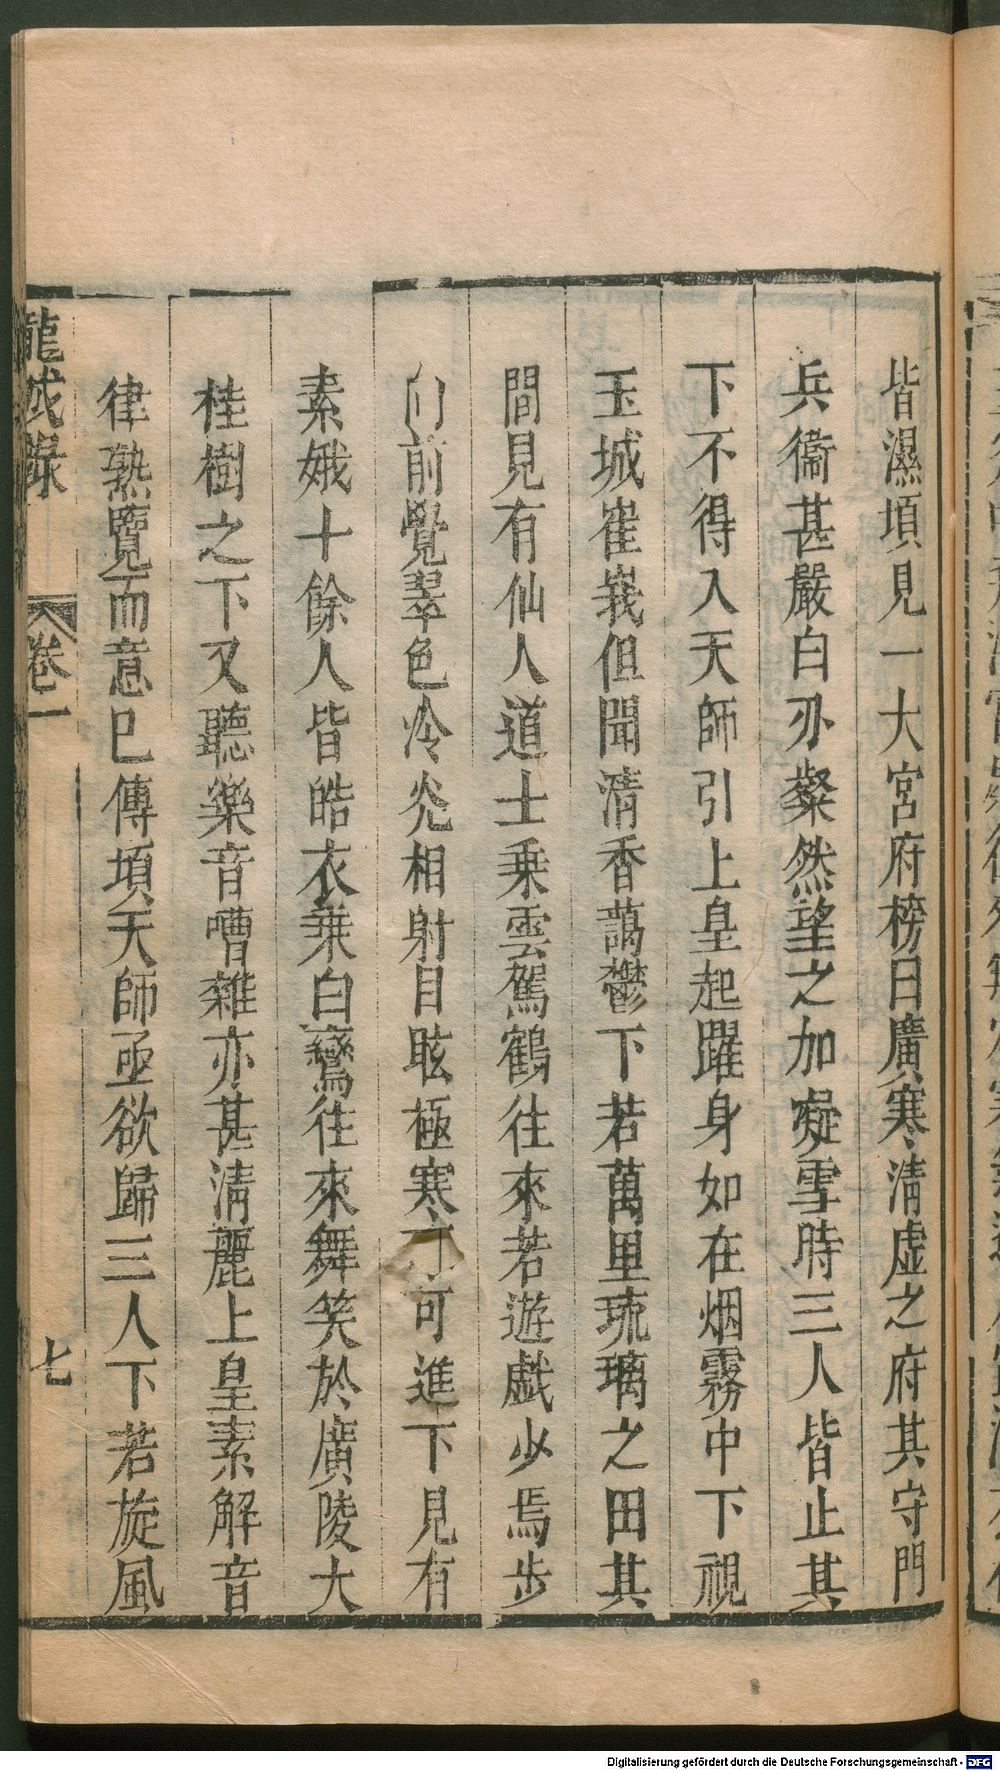 皆濕頃見一大宮府榜曰廣寒清虛之府其守門
兵衞甚嚴白刃粲然望之如凝雪時三人皆止其
下不得入天師引上皇起躍身如在烟霧中下視
玉城崔峩但聞清香藹鬱下若萬里琉璃之田其
間見有仙人道士乗雲駕鶴往來若遊戯少焉步
向前覺翠色冷光相射目眩極寒可進下見有
素娥十餘人皆皓衣乗白鸞往來舞笑於廣陵大
桂樹之下又聽樂音嘈雜亦甚清麗上皇素解音
律熟覽而意已傳頃天師亟欲歸三人下若旋風
龍城錄 卷一 七
Digitalisierung gefördert durch die Deutsche Forschungsgemeinschaft - DFG